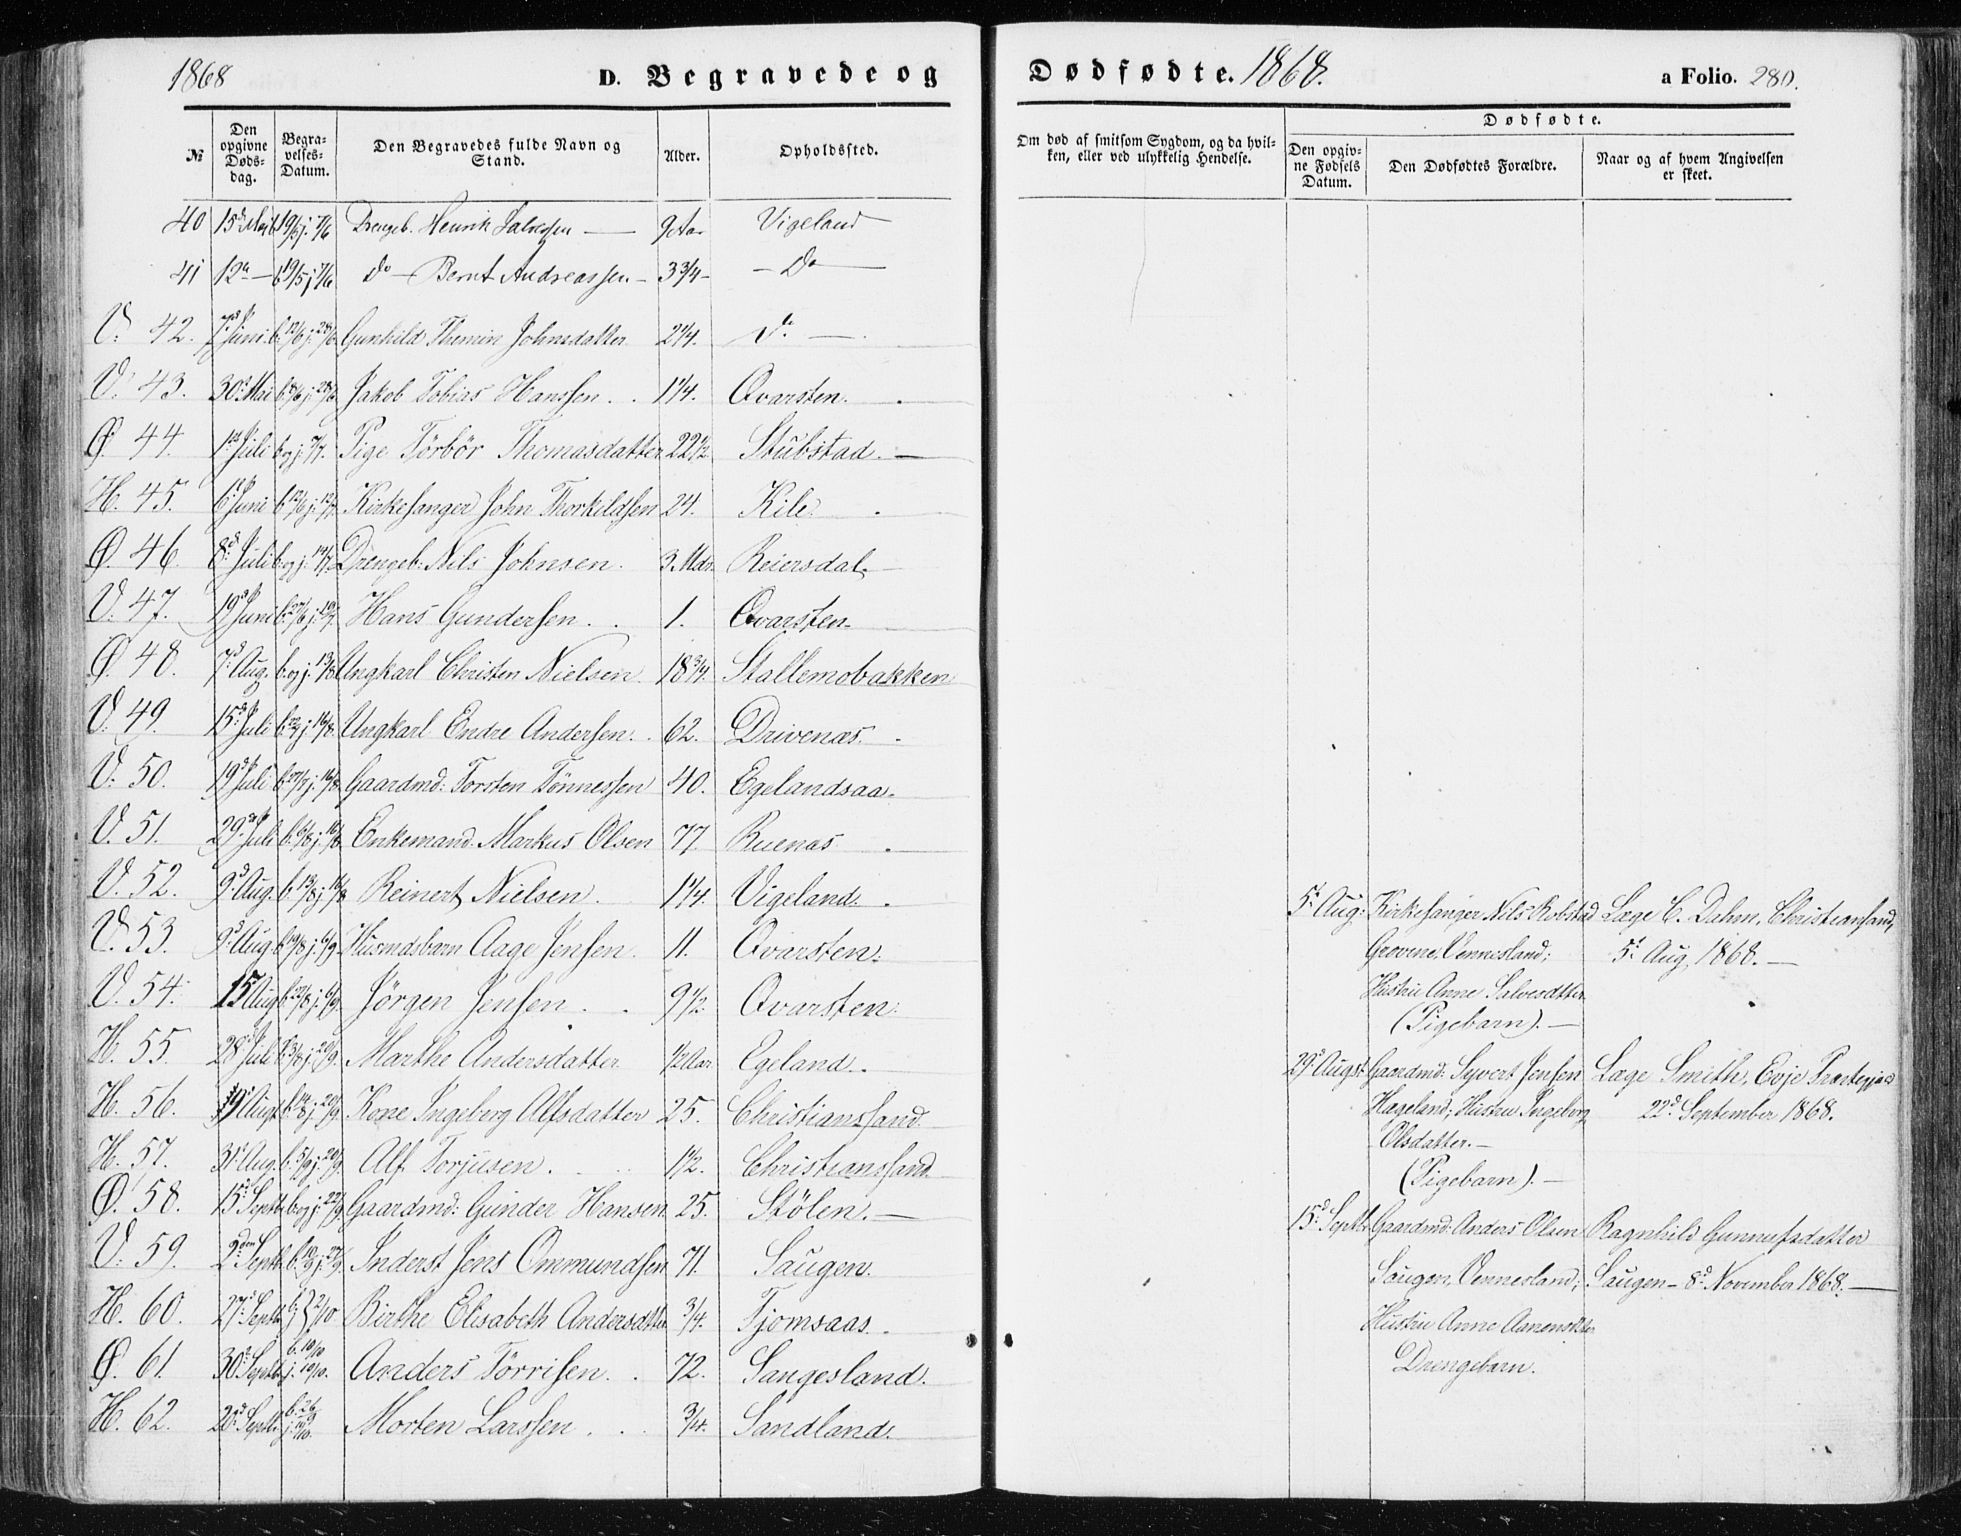 1868
D. Begravede og
№
Den opgivne Døds-dag.
Begra-velses-Datum.
Den Begravedes fulde Navn og Stand.
Alder.
Opholdssted.
40 15de Mai b 19/5 j. 7/6 Drengeb. Henrik Salvesen — 9 Aar Vigeland
41 12te — b 19/5 j 7/6 do — Bernt Andreassen — 3 3/4 — Do —
V. 42. 7d Juni b. 12/6 j. 28/6 Gunhild Johnsdatter 2 1/4. Do —
V. 43. 30d Mai b. 8/6 j. 28/6 Jakob Tobias Hanssen . . 1 1/4. Qvarsten.
Ø. 44. 1ste Juli b og j. 7/7. Pige Törbör Thomasdatter 22 1/2 Stubstad. —
H. 45. 6d Juni b. 12/6 j. 12/7. Kirkesanger John Thorkildsen 24. Kile.
Ø. 46. 8d Juli b. og j. 14/7 Drengeb: Nils Johnsen. 3 Mdr. Reiersdal. —
V. 47. 19d Juni b. 27/6 j. 19/7. Hans Gundersen. . 1. Qvarsten.
Ø. 48. 7d Aug. b. og j. 13/8 Ungkarl Christen Nielsen. 18 3/4. Stallemobakken
V. 49. 15d Juli b. 22/7 j. 16/8. Ungkarl Endre Andersen. . 62. Drivenæs.
V. 50. 19d Juli b. 27/7 j. 16/8. Gaardmd: Torsten Tönnessen 40. Egelandsaa.
V. 51. 29d Juli b. 6/8 j. 16/8. Enkemand: Markus Olsen 77 Ruenæs
V. 52. 9d Aug. b. 13/8 j. 16/8 Reinert Nielsen. 1 1/4. Vigeland.
V. 53. 9d Aug b. 19/8 j. 6/9. Husmdsbarn Aage Jensen. 11. Qvarsten.
V. 54. 15 Aug b. 27/8 j. 6/9. Jörgen Jensen. . 9 1/2. Qvarsten.
H. 55. 28d Juli b. 3/8 j. 20/9. Marthe Andersdatter 1/2 Aar Egeland.
H. 56. Augt b. 14/8 j. 20/9. Kone Ingeberg Alfsdatter 25. Christianssand.
H. 57. 31t Aug. b. 5/9 j. 20/9. Alf Torjusen. 1 1/2. Christianssand.
Ø. 58. 15d Septbr b og j. 22/9 Gaardmd: Gunder Hansen 25. Stölen. —
V. 59. 2den Septb b. 10/9 j. 27/9. Inderst Jens Ommundsen 71. Saugen.
H. 60. 27d Septb b. j. } 2/10. Birthe Elisabeth Andersdtter 3/4. Tjomsaas.
Ø. 61. 30d Septb b. 10/10 j. 10/10. Anders Törrisen. . 72. Sangesland.
H. 62. 20d Septb. b. 26/9 j. 11/10. Morten Larssen. . . 3/4. Sandland.
Dødfødte. 1868.
a Folio. 280.
Om død af smitsom Sygdom, og da hvil-ken, eller ved ulykkelig Hendelse.
Dødfødte.
Den opgiv-ne Fødsels Datum.
Den Dødfødtes Forældre.
Naar og af hvem Angivelsen er skeet.
5t Aug: Kirkesanger Nils Robstad Læge C. Dahm, Christianssand,
Grovene, Vennesland; 5t Aug. 1868. —
Hustru Anne Salvesdtter
(Pigebarn). —
29d Augst Gaardmd: Syvert Jensen Læge Smith, Evje Præstegjæld
Hageland; Hustru Ingeborg 22d September 1868.
Olsdatter. —
(Pigebarn). —
15d Septbr Gaardmd: Anders Olsen Ragnhild Gunnufsdatter
Saugen, Vennesland; Saugen — 8d November 1868. —
Hustru Anne Aanensdtter
Drengebarn.